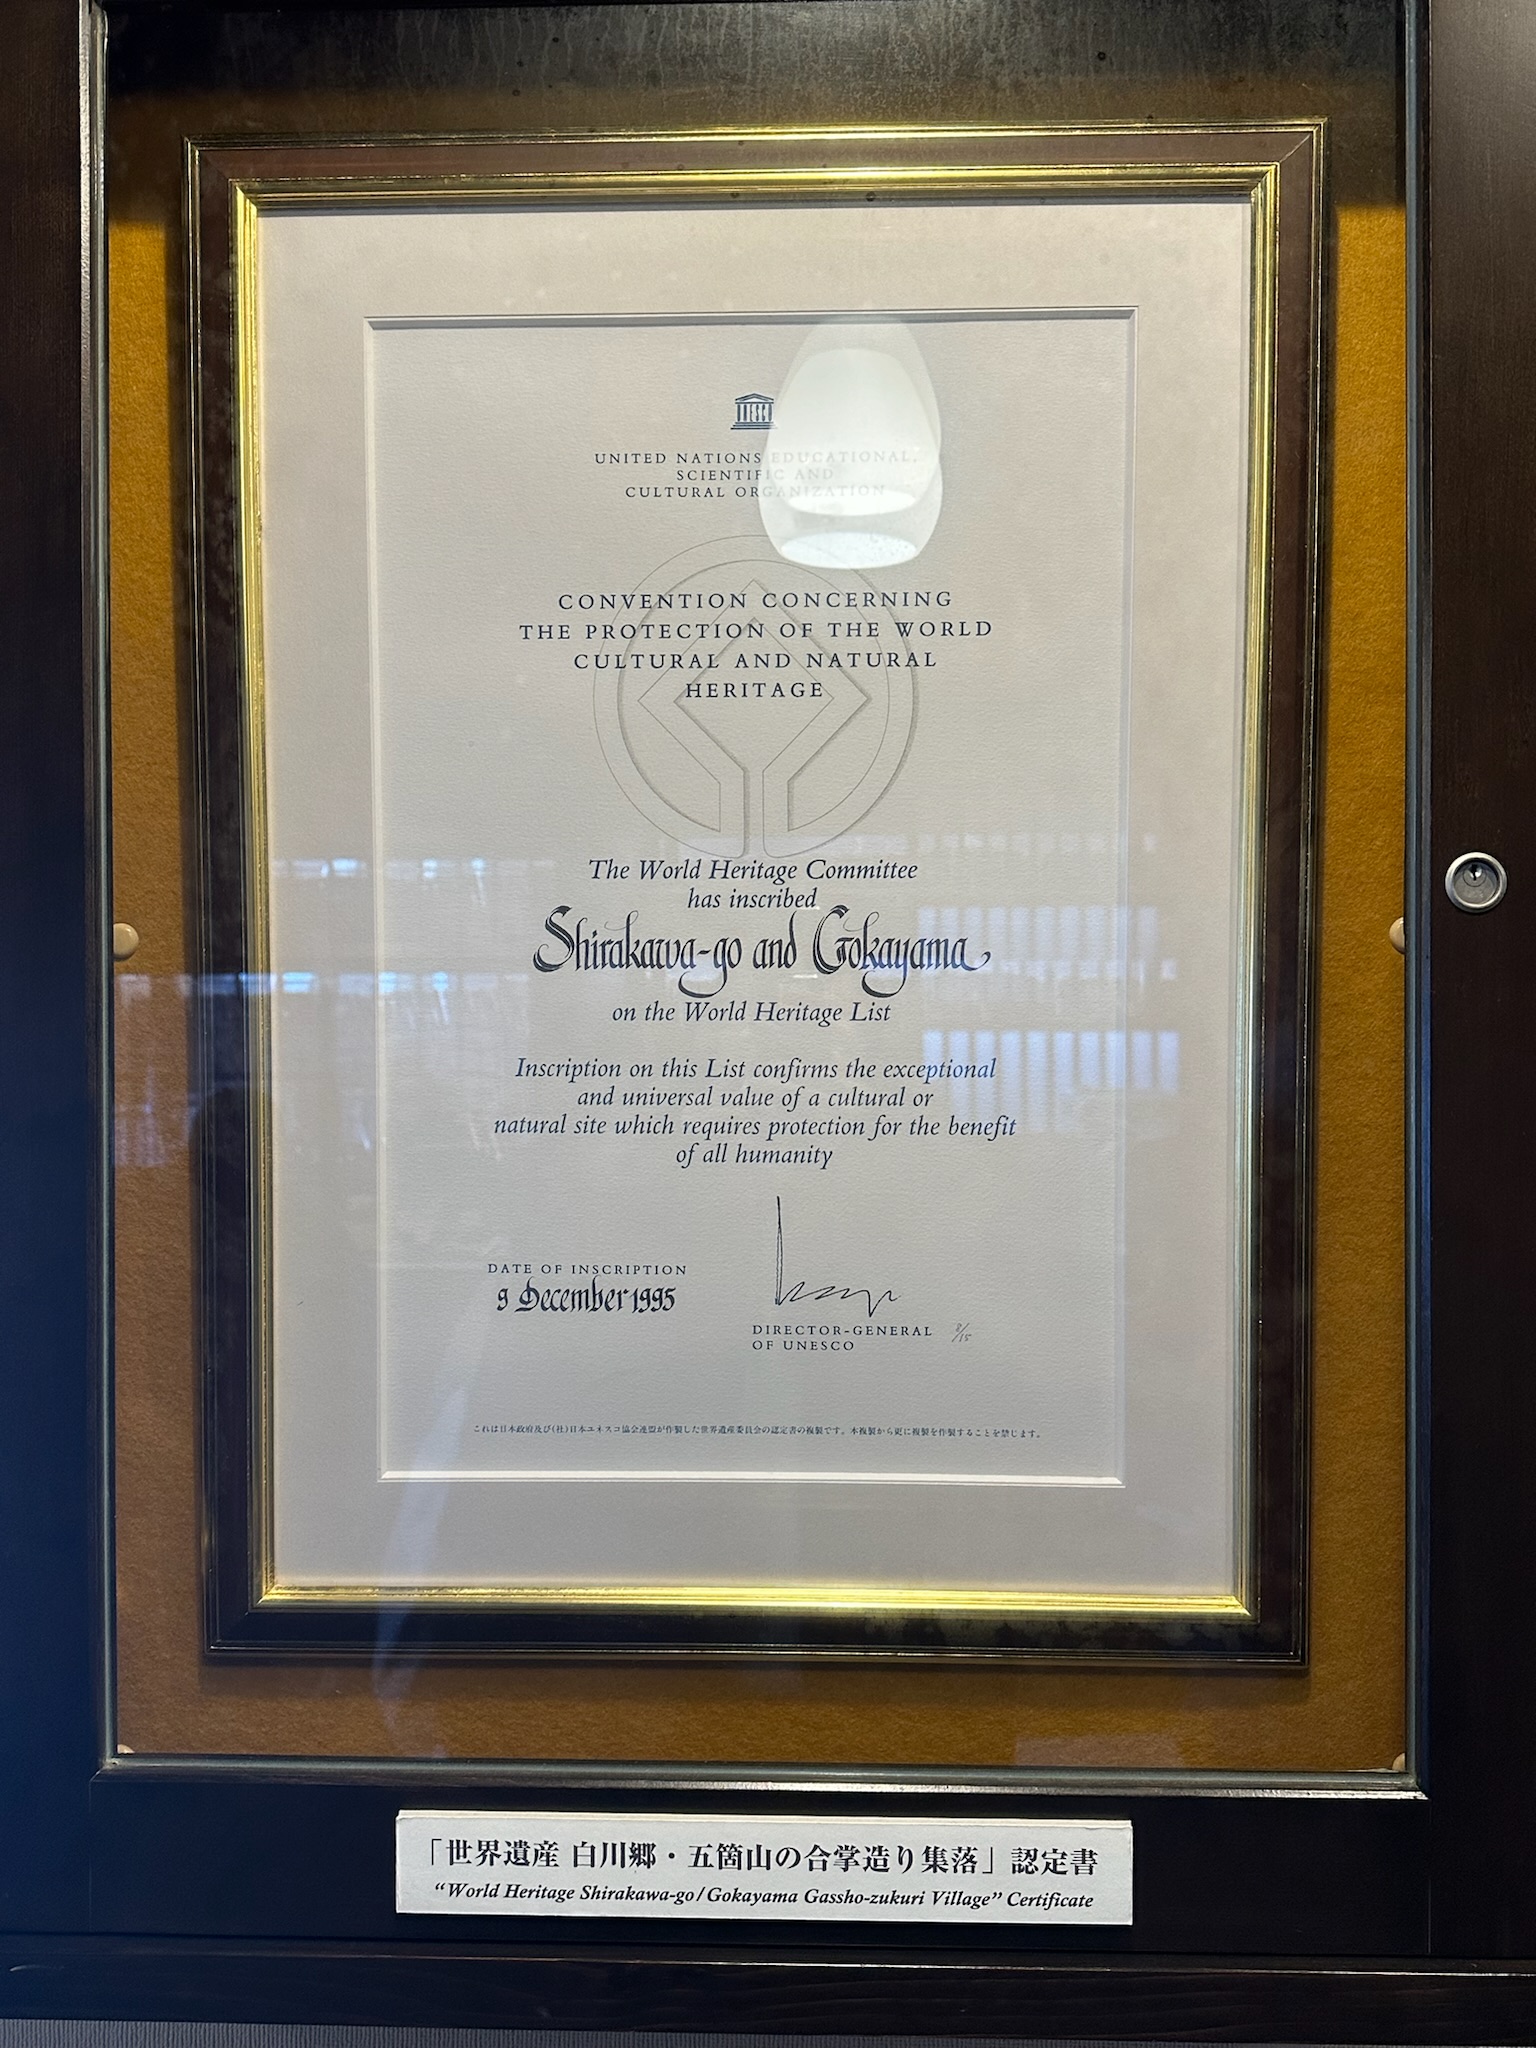 UNESCO
UNITED NATIONS EDUCATIONAL,
SCIENTIFIC AND
CULTURAL ORGANIZATION
CONVENTION CONCERNING
THE PROTECTION OF THE WORLD
CULTURAL AND NATURAL
HERITAGE
The World Heritage Committee
has inscribed
Shirakawa-go and Gokayama
on the World Heritage List
Inscription on this List confirms the exceptional
and universal value of a cultural or
natural site which requires protection for the benefit
of all humanity
DATE OF INSCRIPTION
9 December 1995
DIRECTOR-GENERAL 8/15
OF UNESCO
これは日本政府及び(社)日本ユネスコ協会連盟が作製した世界遺産委員会の認定書の複製です。本複製から更に複製を作製することを禁じます。
「世界遺産 白川郷・五箇山の合掌造り集落」認定書
“World Heritage Shirakawa-go/Gokayama Gassho-zukuri Village” Certificate